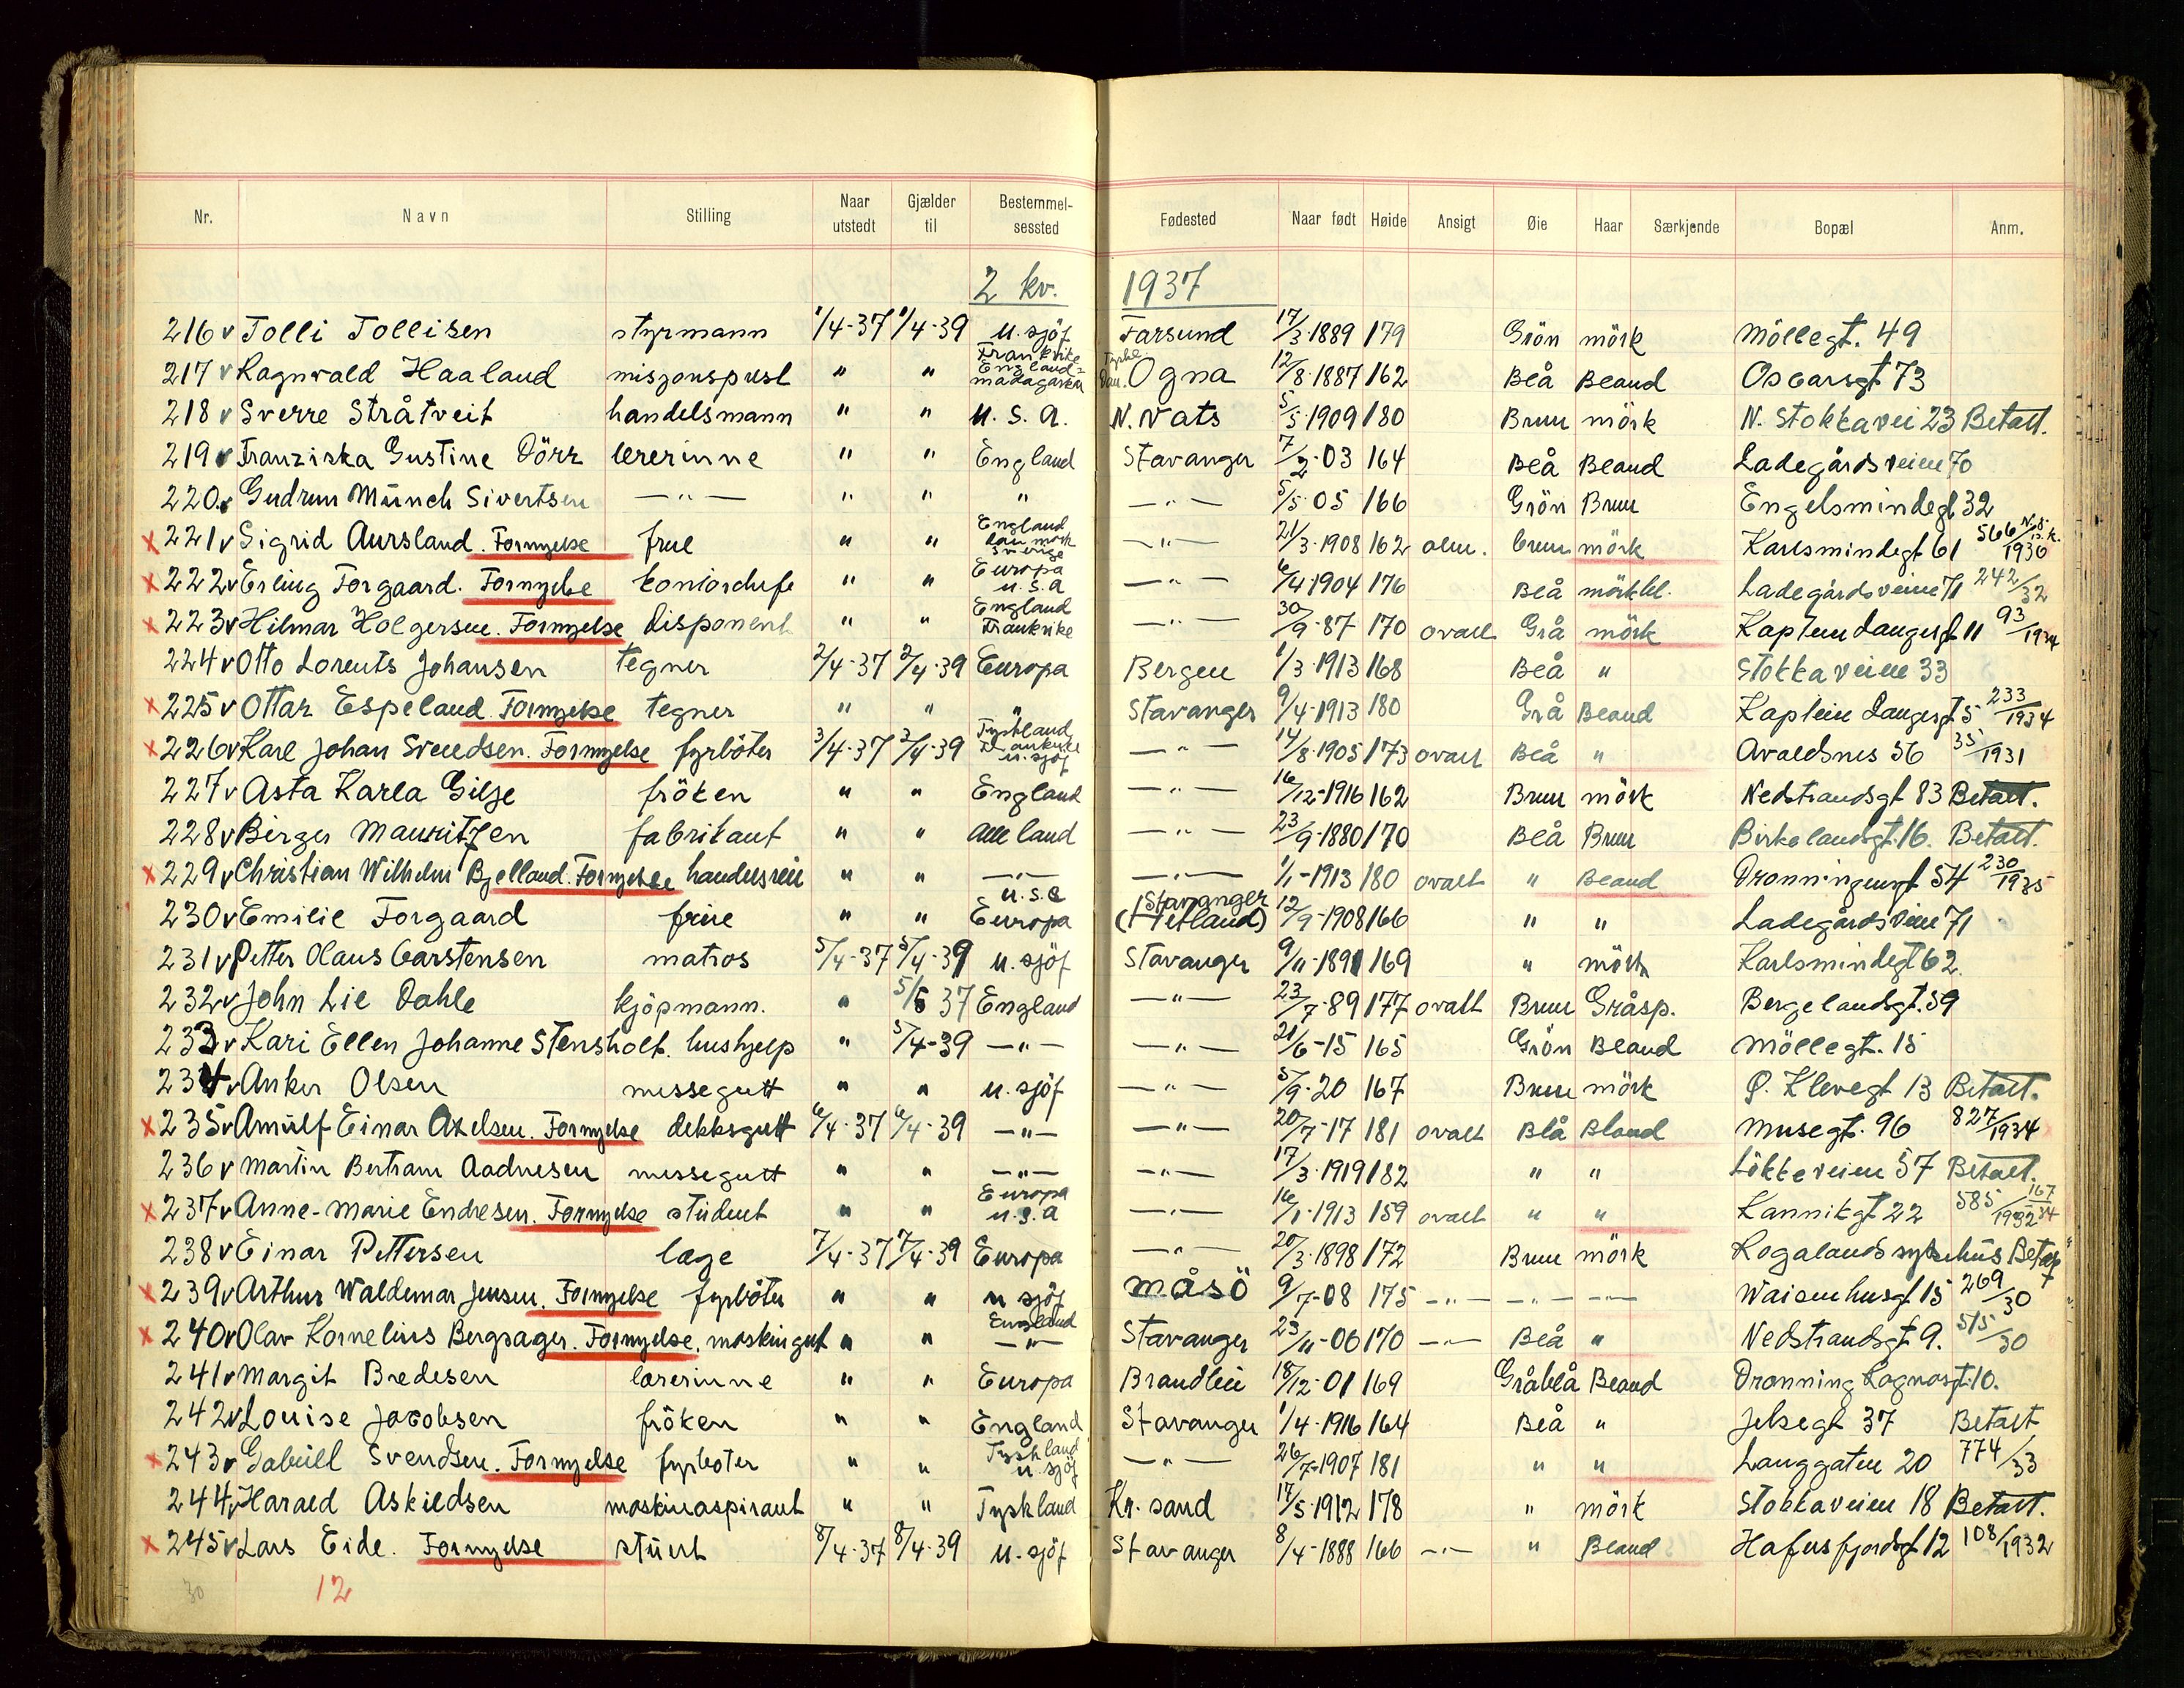 Nr. Navn Stilling Naar utstedt Gjælder til Bestemmel-sessted Fødested Naar født Høide Ansigt Øie Haar Særkjende Bopæl Anm.
2 kv. 1937
216 v Tolli Tollisen styrmann 1/4-37 1/4-39 u. sjöf Farsund 17/3-1889 179 Grön mörk Möllegt. 49
217 v Ragnvald Haaland misjonsprest " " Frankrike England = madagaskar Ogna 12/8-1887 162 Blå Bland Oscarsgt 73
218 v Sverre Stråtveit handelsmann " " U. S. A. N. Vats 5/5-1909 180 Brun mörk N. Stokkavei 23 Betalt.
219 v Franziska Gustine Dörr lererinne " " England Stavanger 7/2-03 164 Blå Bland Ladegårdsveien 70
220 v Gudrun Münch Sivertsen —"— " " " —"— 5/5-05 166 Grön Brun Engelsmindegt 32
x 221 v Sigrid Aursland. Fornyelse frue " " England Danmark Sverige —"— 21/3-1908 162 alm. brun mörk Karlsmindegt 61 566 1936
x 222 v Erling Torgaard. Fornyelse kontorchefe " " Europa U.S.A —"— 6/4-1904 176 Blå mörkbl. Ladegårdsveien 71 242/32
x 223 v Hilmar Holgersen. Fornyelse Disponent " " England Frankrike —"— 30/9-87 170 ovalt Grå mörk Kaptein Langesgt 11 93/1934
224 v Otto Lorents Johansen tegner 2/4-37 2/4-39 Europa Bergen 1/3-1913 168 Blå " Stokkaveien 33
x 225 v Ottar Espeland. Fornyelse tegner " " " Stavanger 9/4-1913 180 Grå Bland Kaptein Langesgt 5 233/1934
x 226 v Karl Johan Svendsen. Fornyelse fyrböter 3/4-37 3/4-39 Tyskland Frankrike u. sjöf —"— 14/8-1905 173 ovalt Blå " Avaldsnes 56 35/1931
227 v Asta Karla Gilje fröken " " England —"— 16/12-1916 162 Brun mörk Nedstrandsgt 83 Betalt.
228 v Birger Mauritzen fabrikant " " alle land —"— 23/9-1880 170 Blå Brun Birkelandsgt. 16. Betalt.
x 229 v Christian Wilhelm Bjelland. Fornyelse handelsreis " " —"— —"— 1/1-1913 180 ovalt " Bland Dronningensgt 54 230/1935
230 v Emilie Torgaard frue " " U.S.A Europa Stavanger (Hetland) 12/9-1908 166 " " Ladegårdsveien 71
231 v Petter Olaus Carstensen matros 5/4-37 5/4-39 u. sjöf Stavanger 9/11-1891 169 " mörk Karlsmindegt 62.
232 v John Lie Dahle kjöpmann. " 5/6 37 England —"— 23/7-89 177 ovalt Brun Gråsp. Bergelandsgt. 59
233 v Kari Ellen Johanne Stensholt. hushjelp " 5/4-39 —"— —"— 21/6-15 165 Grön Bland Möllegt. 15
234 v Anker Olsen messegutt " " u. sjöf —"— 5/9-20 167 Brun mörk P. Klevegt 13 Betalt.
x 235 v Arnulf Einar Axelsen. Fornyelse dekksgutt 6/4-37 6/4-39 —"— —"— 20/7-17 181 ovalt Blå Bland Musegt. 96 827/1934
236 v Martin Bertram Aadnesen messegutt " " —"— —"— 17/3-1919 182 " " Lökkeveien 57 Betalt.
x 237 v Anne-Marie Endresen. Fornyelse student " " Europa U.S.A —"— 16/1-1913 159 ovalt " " Kannikgt 22 585/1932 167/34
238 v Einar Pettersen læge 7/4-37 7/4-39 Europa —"— 20/3-1898 172 Brun mörk Rogalands sykehus Betalt
x 239 v Arthur Waldemar Jensen. Fornyelse fyrböter " " u sjöf Måsö 9/7-08 175 —"— —"— —"— Waisenhusgt 15 269/30
x 240 v Olav Kornelius Bergsager. Fornyelse. maskingutt " " England —"— Stavanger 23/11-06 170 —"— Blå " Nedstrandsgt 9. 515/30
241 v Margit Bredesen lærerinne " " Europa Brandlei 18/12-01 169 Gråblå Bland Dronning Ragnasgt. 10.
242 v Louise Jacobsen fröken " " England Stavanger 1/4-1916 164 Blå " Jelsegt 37 Betalt
x 243 v Gabriell Svendsen. Fornyelse fyrboter " " Tyskland u. sjöf —"— 26/7-1907 181 " " Langgaten 20 774/33
244 v Harald Askildsen maskinaspirant " " Tyskland Kr. sand 17/5-1912 178 " mörk Stokkaveien 18 Betalt.
x 245 v Lars Eide. Fornyelse stuert 8/4-37 8/4-39 u. sjöf Stavanger 8/4-1888 166 —"— " Bland Hafrsfjordsgt 12 108/1932
30 12